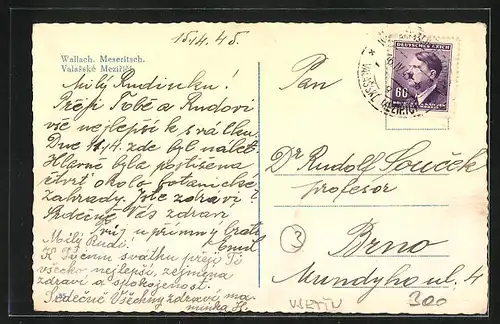 15/4. 45.
Wallach. Meseritsch.
Valašské Meziříčí.
Milý Rudínku!
Přeji Tobě a Rudovi
vše nejlepší k svátku.
Dne 11/4. zde byl nálet.
Hlavně byla postižena
čtvrť okolo botanické
zahrady. Jste zdrávi?
Srdečně Vás zdraví
Tvůj upřímný
Emil
Milý Rudi!
K Tvému svátku přeji Ti
všecko nejlepší, zejména
zdraví a spokojenost.
Srdečně Všechny zdraví, ma-
minka H.
DEUTSCHES REICH
60
Pan
Dr Rudolf Souček
profesor
Brno
Mundyho ul. 4
3
300